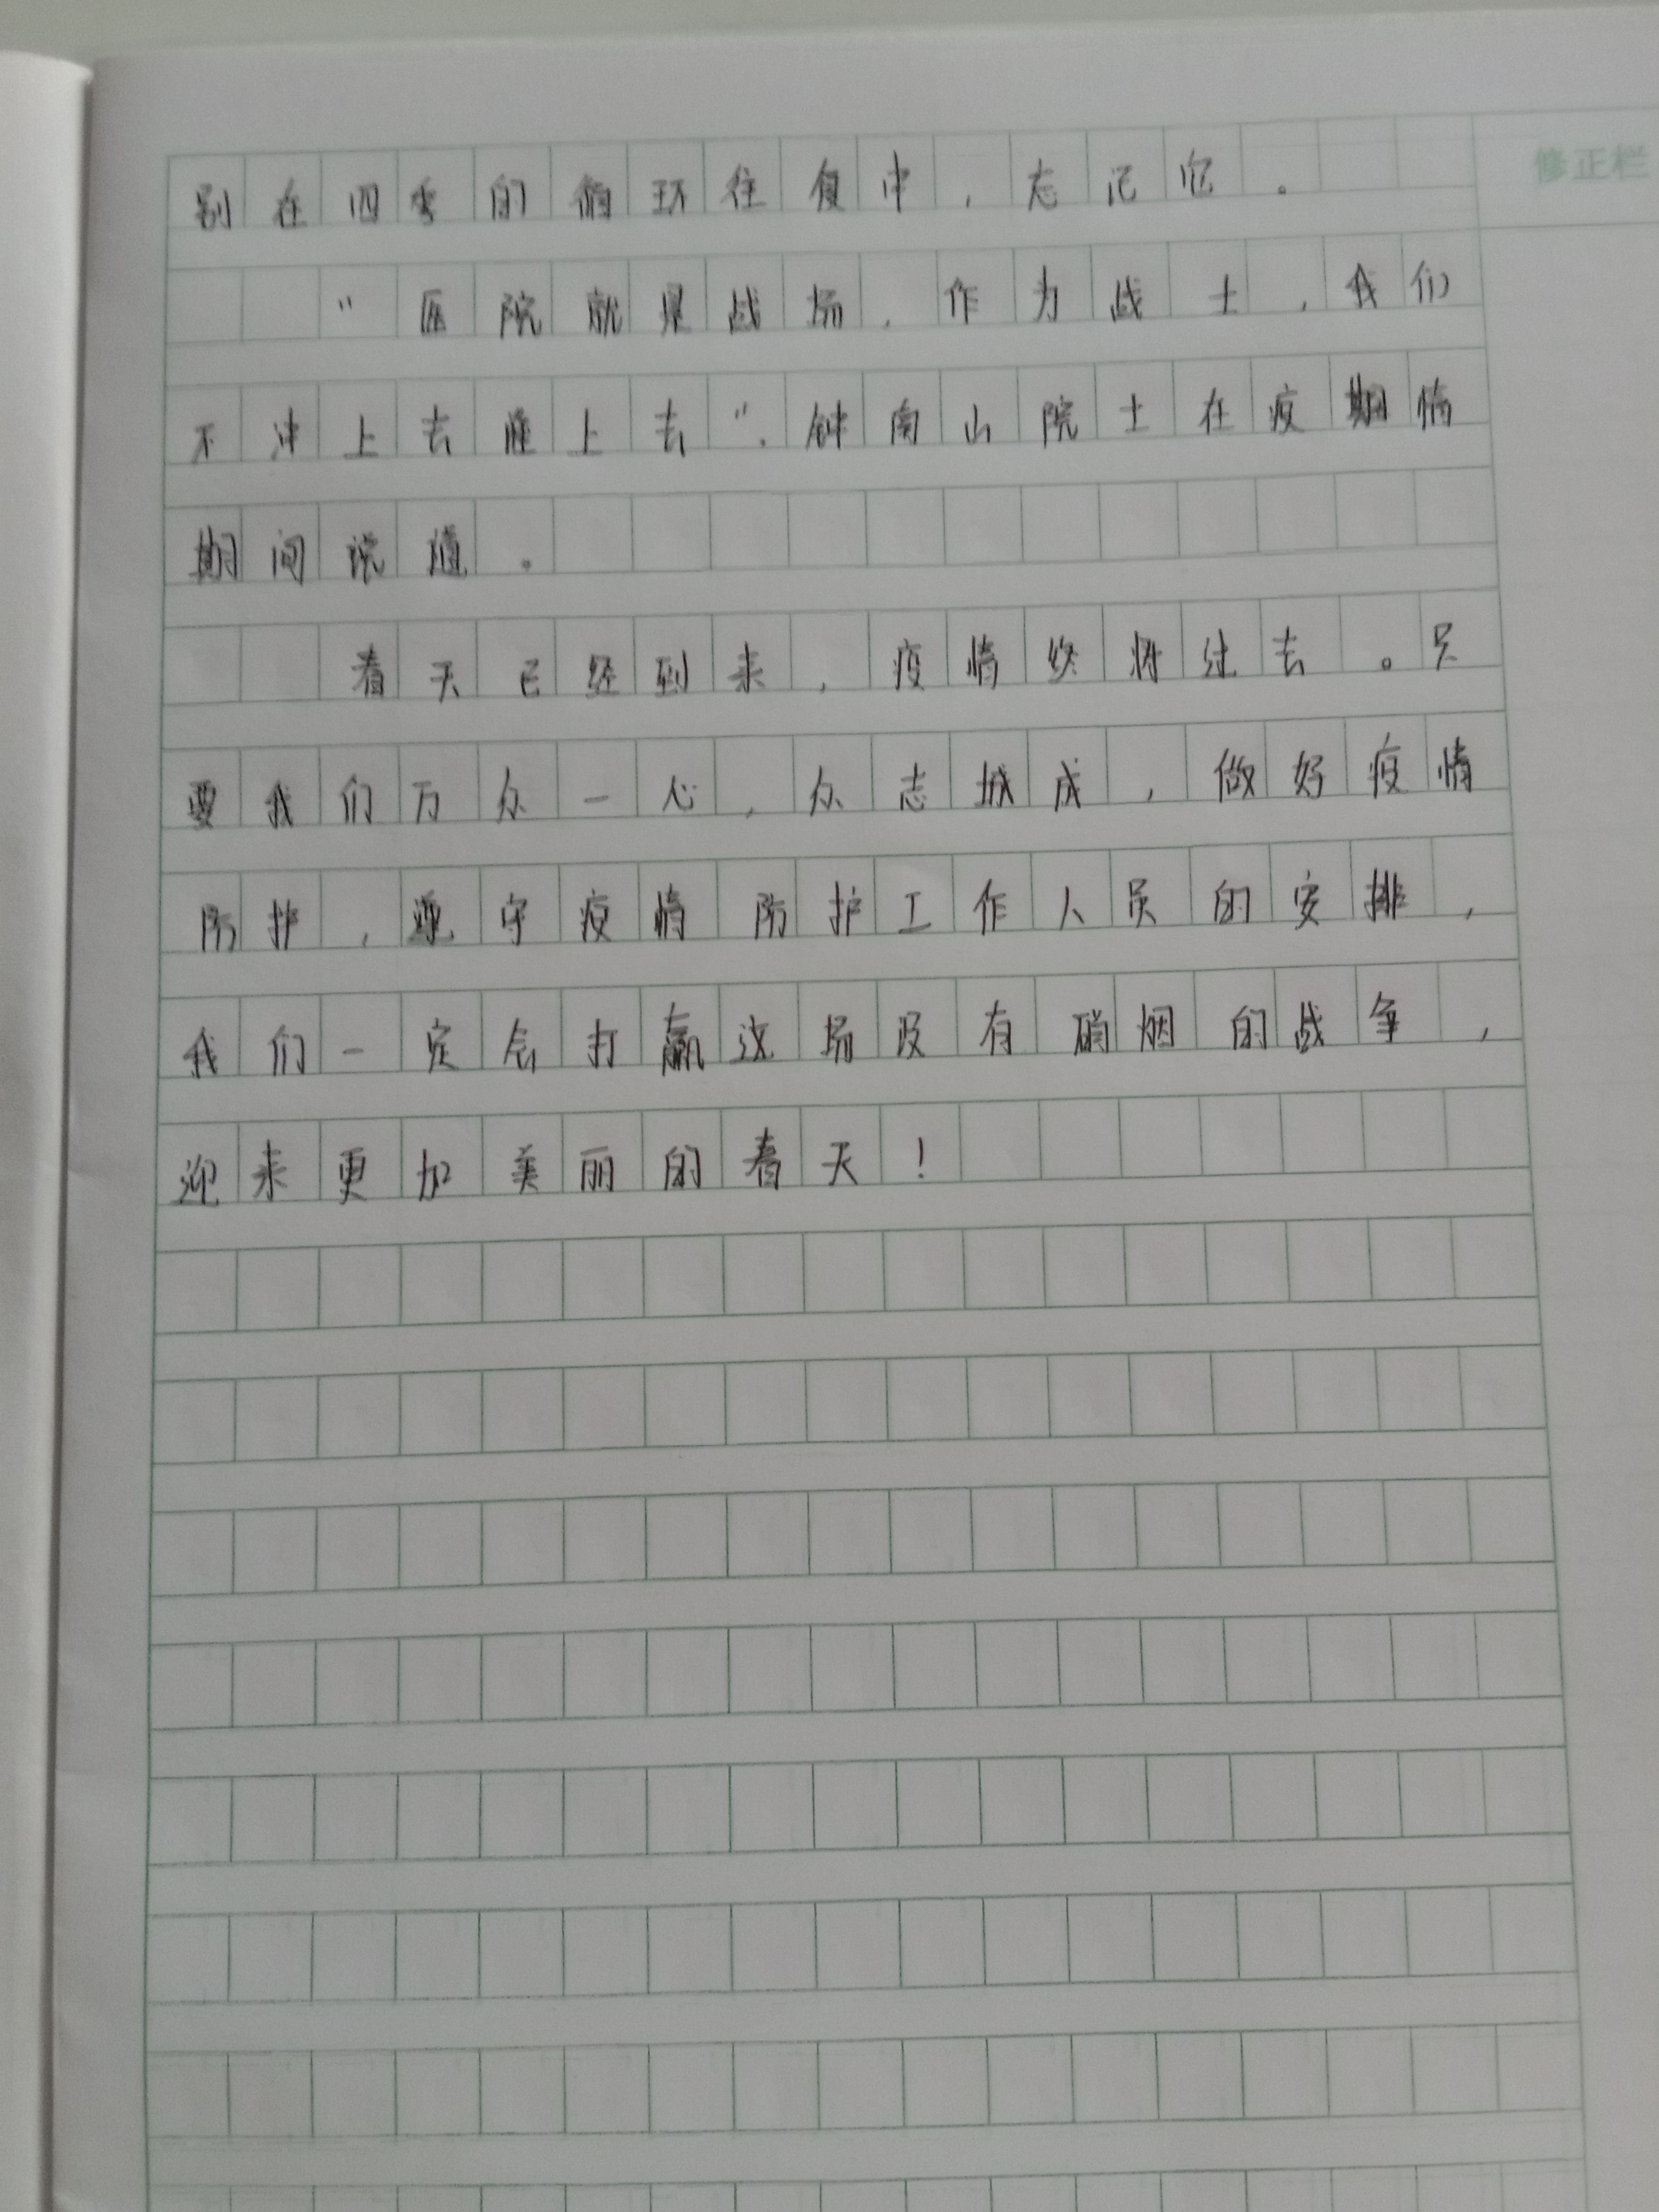 别在四季的循环往复中，忘记它。
修正栏
"医院就是战场，作为战士，我们
不冲上去谁上去"，钟南山院士在疫期情
期间说道。
春天已经到来，疫情终将过去。只
要我们万众一心，众志城成，做好疫情
防护，遵守疫情防护工作人员的安排，
我们一定会打赢这场没有硝烟的战争，
迎来更加美丽的春天！